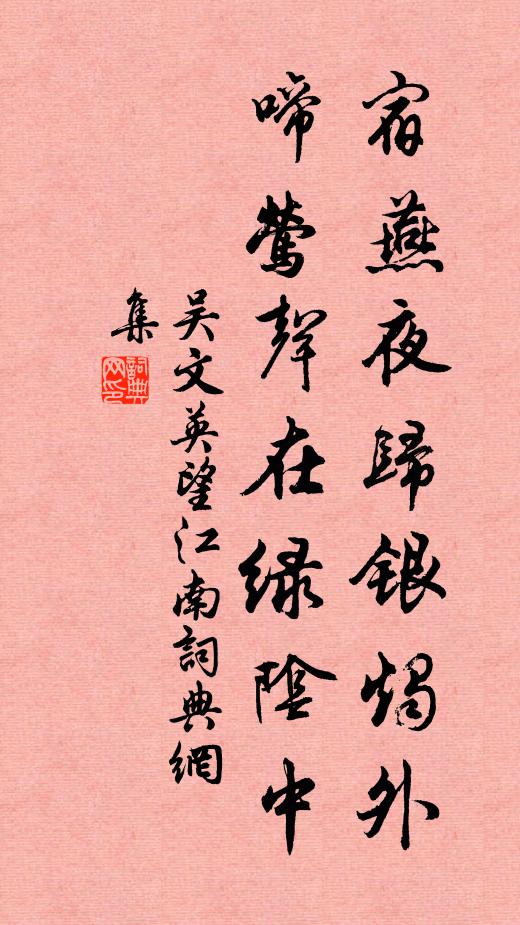 宿燕夜歸銀燭外
啼鶯聲在緑陰中
吴文英望江南詞典網
集
詞典
网印